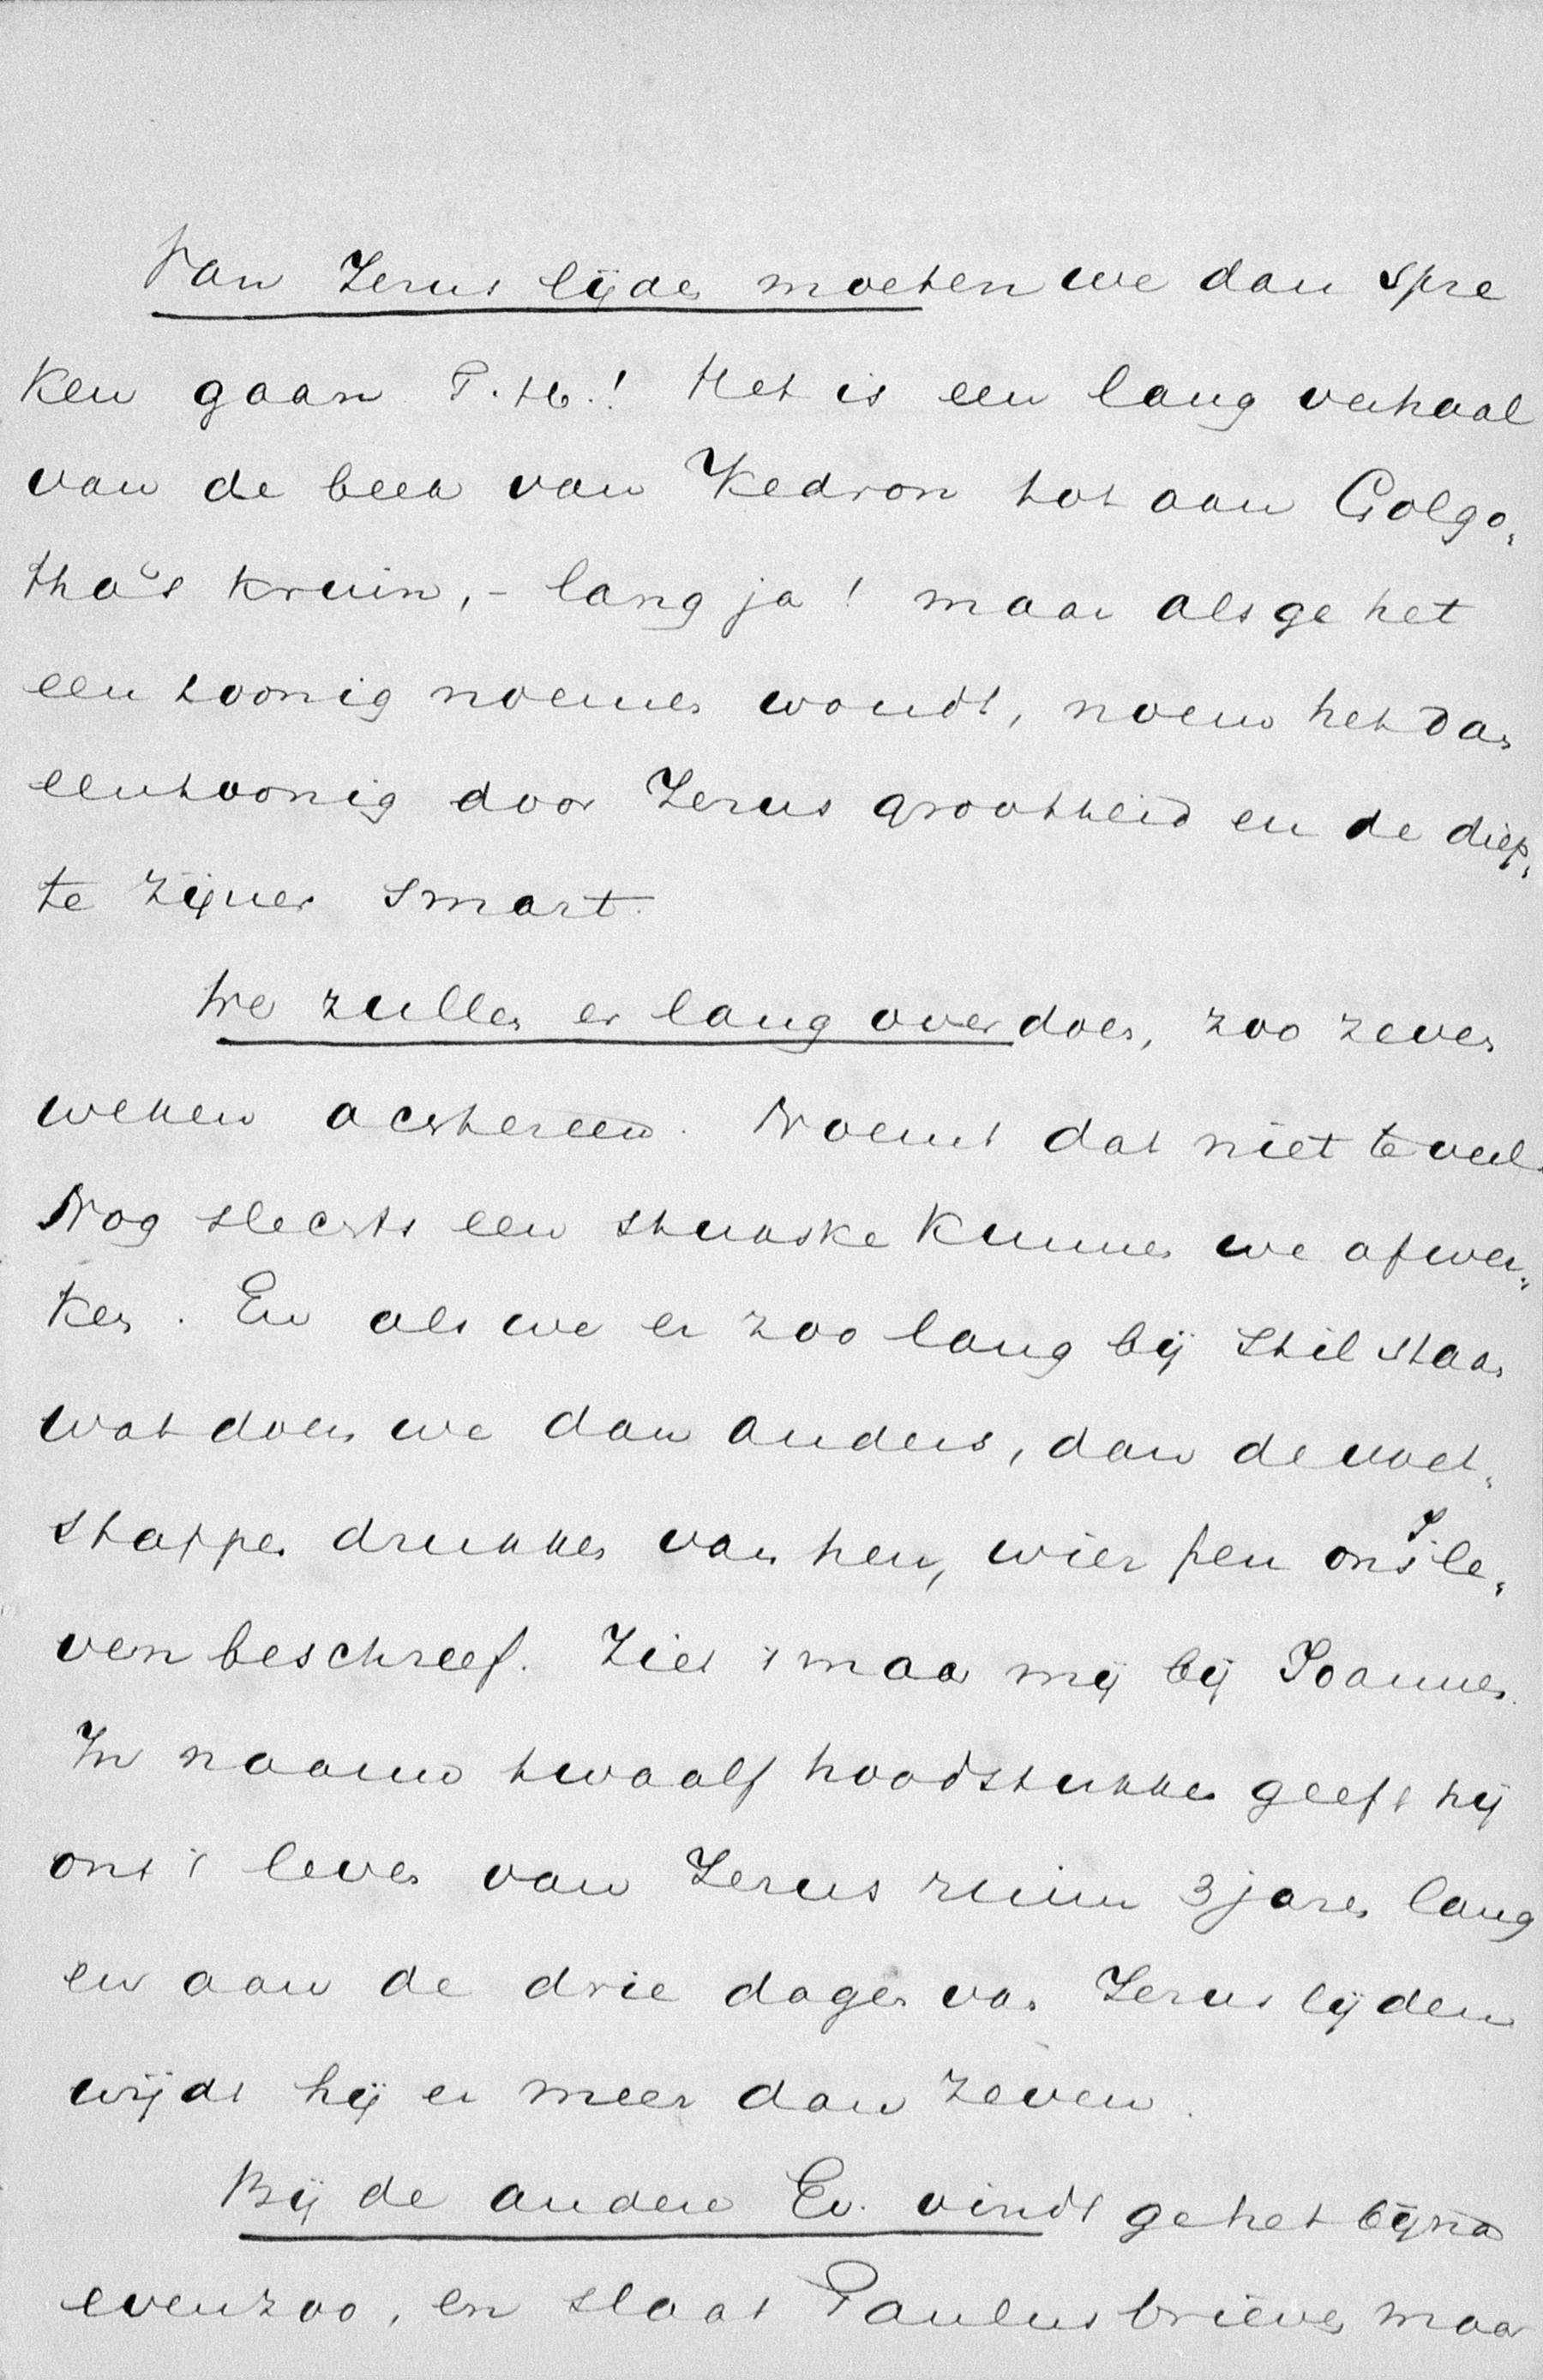 Van Jezus lijden moeten we dan spre
ken gaan T. H.! Het is een lang verhaal
van de beek van Kedron tot aan Golgo„
tha's kruin, – lang ja! maar als ge het
een toonig noemen woudt, noem het dan
eentoonig door Jezus grootheid en de diep„
te zijner smart.
We zullen er lang over doen, zoo zeven
weken achtereen. Noemt dat niet te veel.
Nog slechts een stukske kunnen we afwer„
ken. En als we er zoo lang bij stil staan
wat doen we dan anders, dan de voet„
stappen drukken van hen, wier pen ons J le„
ven beschreef. Ziet 't maar mij bij Joannes.
In naauw twaalf hoodstukken geeft hij
ons 't leven van Jezus ruim 3 jaren lang
en aan de drie dagen van Jezus lijden
wijdt hij er meer dan zeven.
Bij de andere Ev. vindt ge het bijna
evenzoo, en slaat Paulus brieven maar